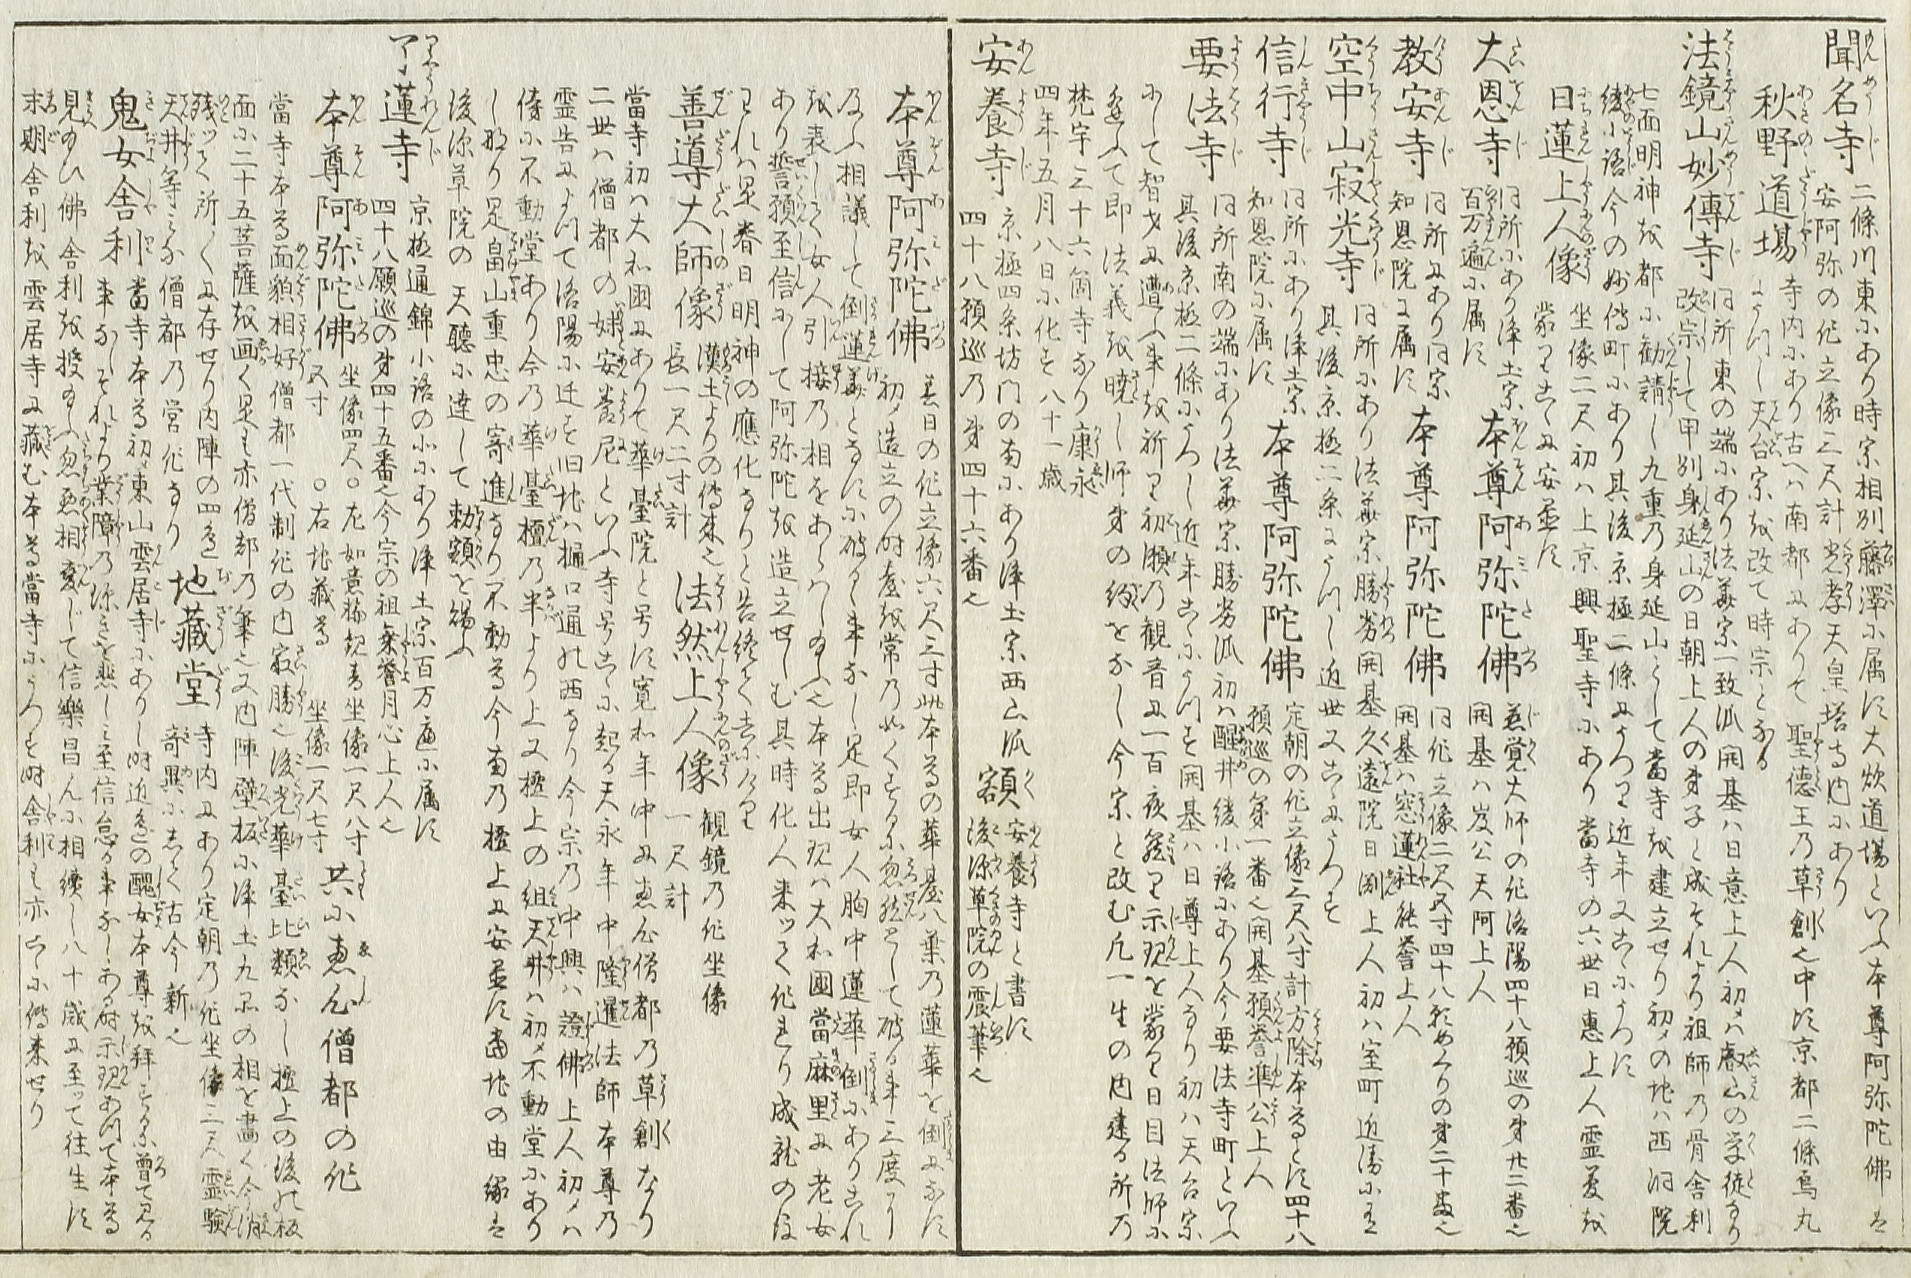 聞名寺 二條川東にあり時宗相州藤澤に属す大炊道場といふ本尊阿弥陀佛は
安阿弥の作立像三尺計 光孝天皇塔寺内にあり
秋野道場 寺内にあり古へハ南都にありて 聖徳王の草創也中頃京都二條烏丸
にうつし天台宗を改て時宗となる
法鏡山妙傳寺 同所東の端にあり法華宗一致派開基ハ日意上人初メハ叡山の学徒なり
改宗して甲州身延山の日朝上人の弟子と成それより祖師の骨舎利
七面明神を都に勧請し九重の身延山として當寺を建立せり初メの地ハ西洞院
綾小路今の妙傳町にあり其後京極二條にうつり近年又こゝにうつす
日蓮上人像 坐像二尺初ハ上京興聖寺にあり當寺の六世日惠上人霊夢を
蒙りこゝに安置す
大恩寺 同所にあり浄土宗 百万遍に属す 本尊阿弥陀佛 慈覚大師の作洛陽四十八願巡の第廿二番也
開基ハ岌公天阿上人
教安寺 同所にあり同宗 知恩院に属す 本尊阿弥陀佛 同作立像二尺八寸四十八願めくりの第二十番也
開基ハ窓蓮社能誉上人
空中山寂光寺 同所にあり法華宗勝劣開基久遠院日淵上人初ハ室町近衛にあり
其後京極二条にうつし近世又こゝにうつす
信行寺 同所にあり浄土宗 知恩院に属す 本尊阿弥陀佛 定朝の作立像三尺八寸計方除本尊とす四十八
願巡の第一番也開基願誉準公上人
要法寺 同所南の端にあり法華宗勝劣派初ハ醒井綾小路にあり今要法寺町といふ
其後京極二條にうつし近年こゝにうつす開基ハ日尊上人なり初ハ天台宗
にして智才に遭ん事を祈り初瀬の観音に一百夜籠り示現を蒙り日目法師に
逢ふて即法義を暁し師弟の約をなし今宗と改む凡一生の内建る所の
梵宇三十六箇寺なり康永
四年五月八日に化す八十一歳
安養寺 京極四条坊門の南にあり浄土宗西山派 額 安養寺と書す
四十八願巡の第四十六番也 後深草院の震筆也
本尊阿弥陀佛 春日の作立像六尺三寸此本尊の華座八葉の蓮華を倒になす
初メ造立の時座を常の如くするに忽然として破る事三度なり
及ふ相議して倒蓮華となすに破るゝ事なし是即女人胸中蓮華倒にありこれ
を表して女人引接の相をあらハし給ふ也本尊出現ハ大和國當麻里に老女
あり誓願至信にして阿弥陀を造立せしむ其時化人来ッて作まり成就のほ
りれハ是春日明神の應化なりと告終て去にけり
善導大師像 漢土よりの傳来也 長一尺二寸計 法然上人像 観鏡の作坐像 一尺計
當寺初ハ大和國にありて華臺院と号す寛和年中に恵心僧都の草創なり
二世ハ僧都の妹安養尼といふ寺号こゝに起る天永年中隆暹法師本尊の
霊告によつて洛陽に迁す旧地ハ堀口通の西なり今宗の中興ハ證佛上人初メハ
傍に不動堂あり今の華臺檀の半より上又檀上の組天井ハ初メ不動堂にあり
し所り是畠山重忠の寄進なり不動尊今南の檀上に安置す當地の由縁を
後深草院の 天聴に達して勅額を賜ふ
了蓮寺 京極通錦小路の北にあり浄土宗百万遍に属す
四十八願巡の第四十五番也今宗の祖乗誉月心上人也
本尊阿弥陀佛 坐像四尺 五寸 〇左如意輪観音坐像一尺八寸 〇右地蔵尊 坐像一尺七寸 共に恵心僧都の作
當寺本尊面貌相好僧都一代制作の内最勝也後光華臺比類なし檀上の後の板
面に二十五菩薩を画く是も亦僧都の筆也又内陣壁板に浄土九品の相を畫く今消
残ッて所〻に存せり内陣の四邊
天井等ミな僧都の営作なり 地藏堂 寺内にあり定朝の作坐像三尺霊験
奇異にして古今新也
鬼女舎利 當寺本尊初メ東山雲居寺にありし時近邊の醜女本尊を拝するに曽て見る
事なしそれより業障の深きを悲しミ至信怠る事なしある時示現あつて本尊
見給ひ佛舎利を授給ふ忽悪相変じて信樂昌んに相續し八十歳に至ッて往生す
末期舎利を雲居寺に藏む本尊當寺にうつす時舎利も亦こゝに傳来せり